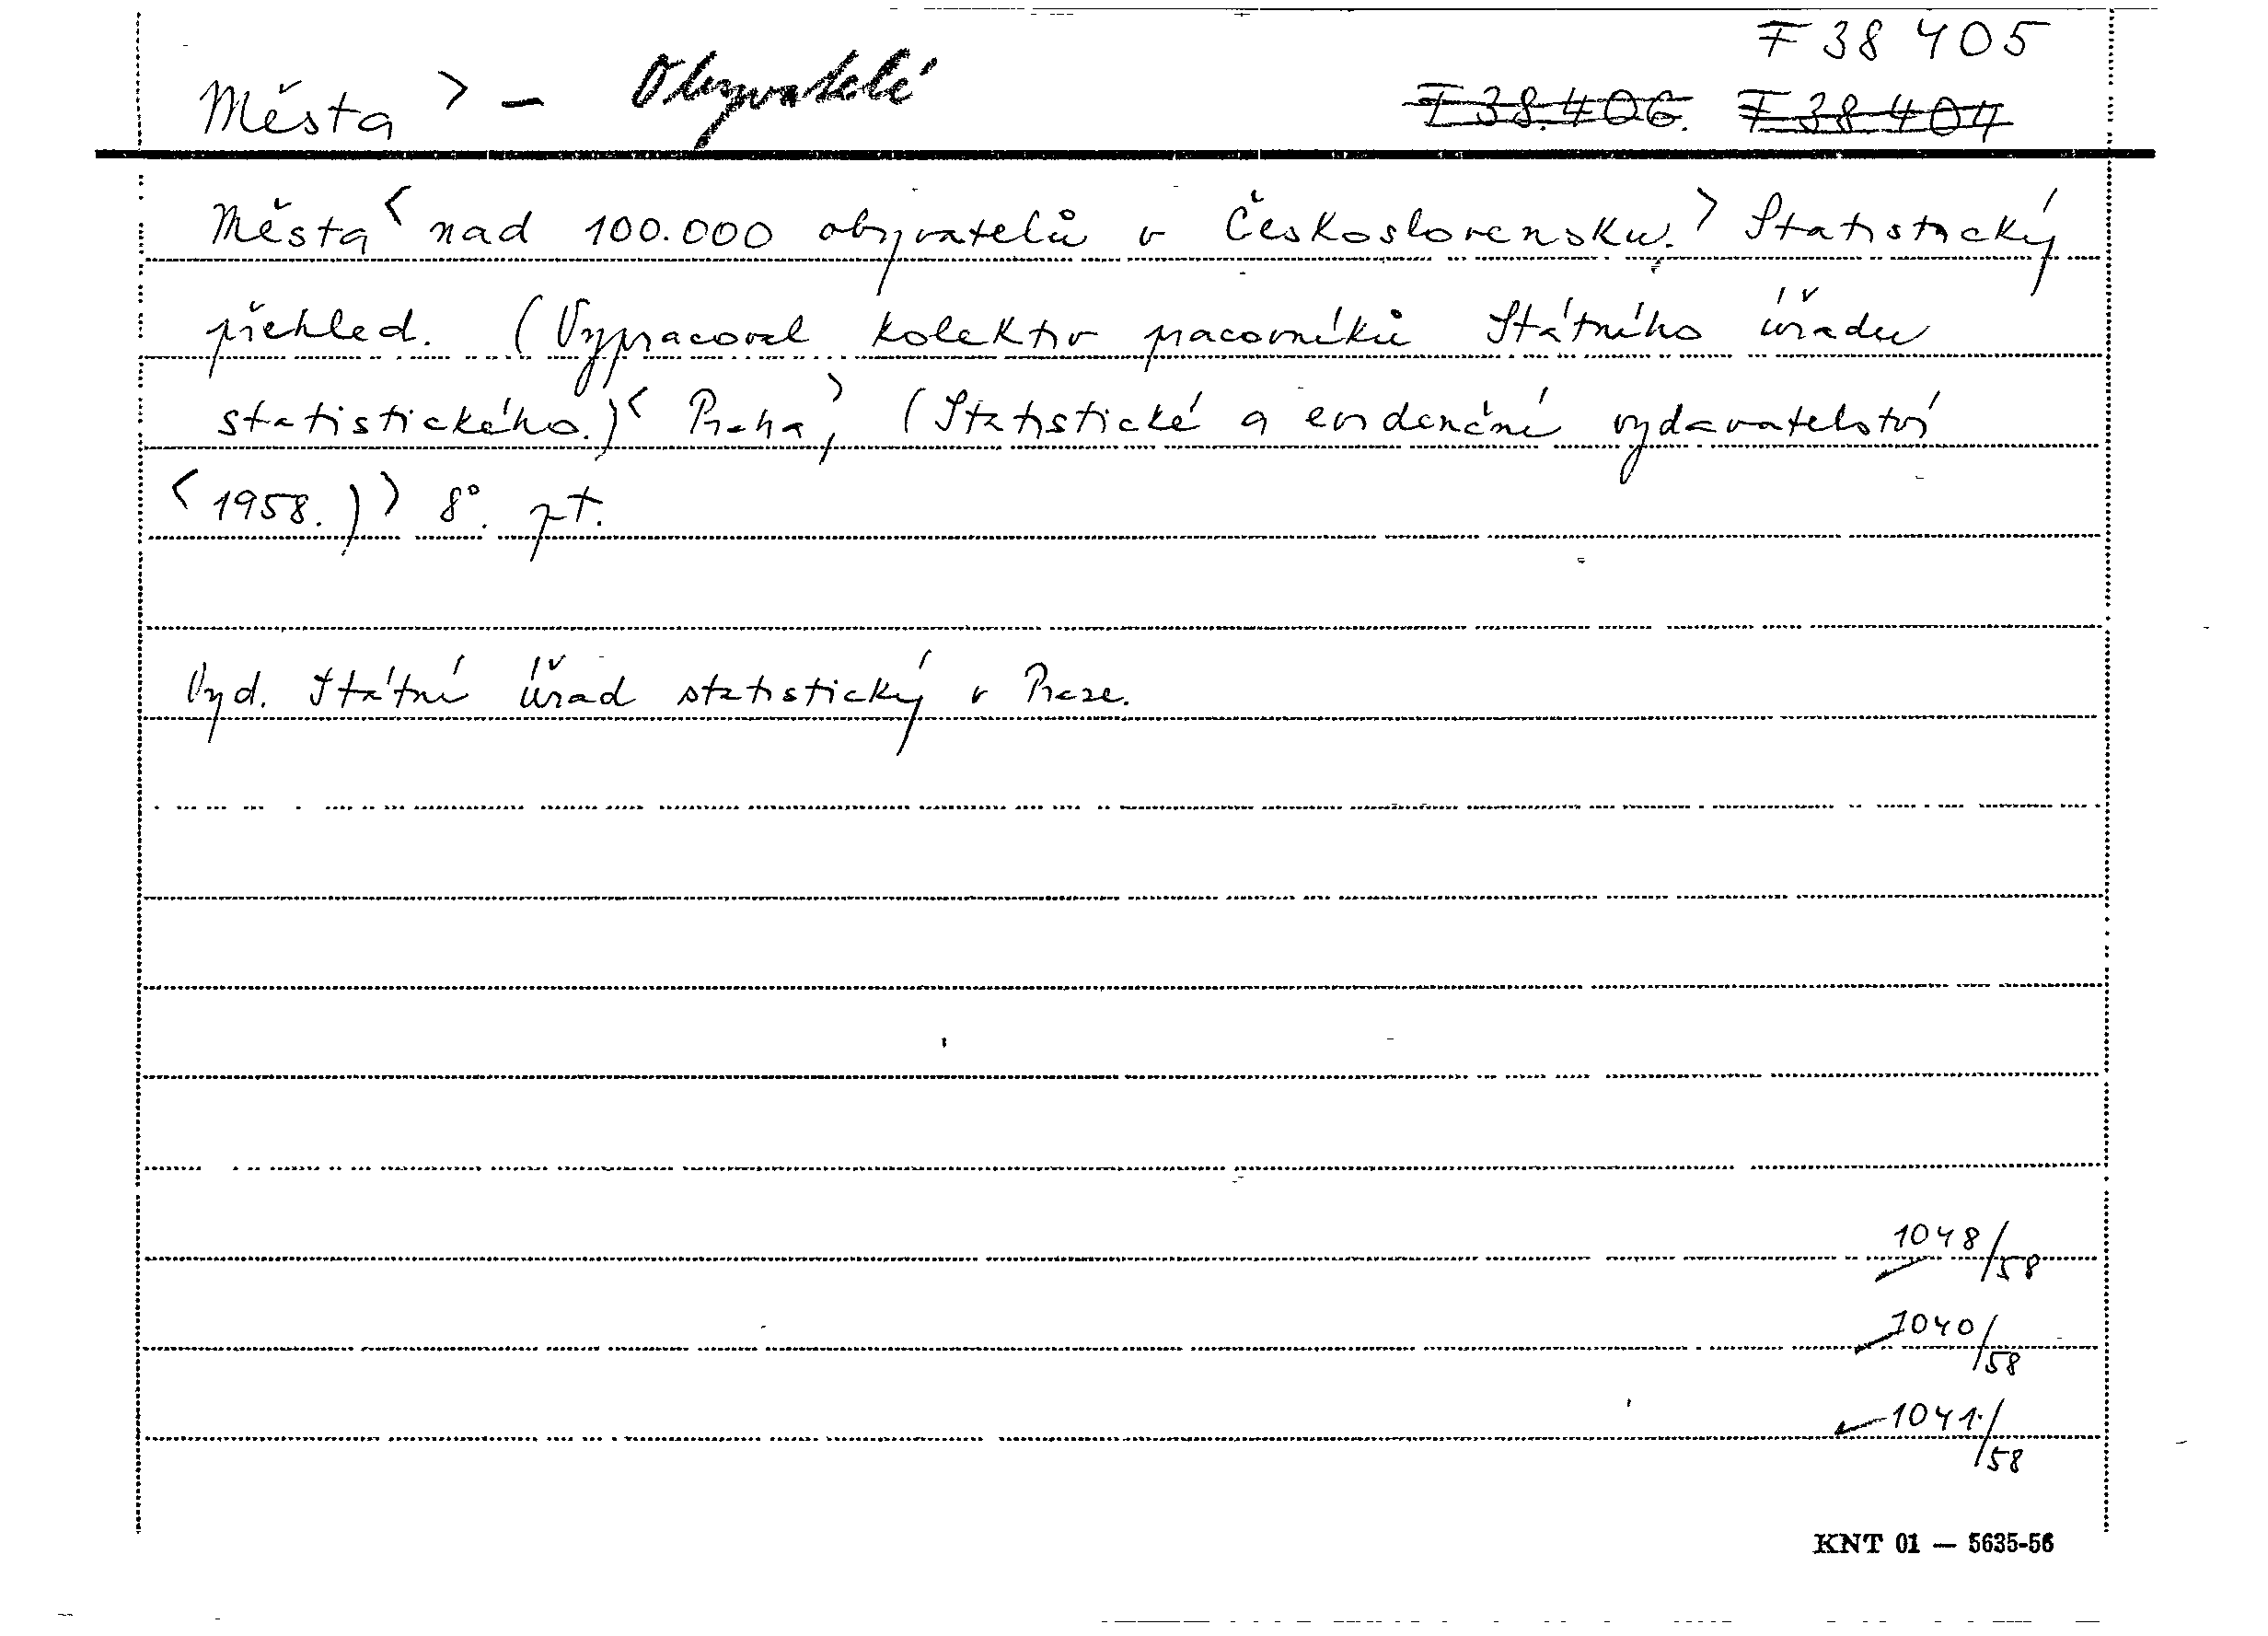 F 38 405
Města > - Obyvatelé
F 38.406. F 38 404
Města < nad 100.000 obyvatelů v Československu. > Statistický
přehled. (Vypracoval kolektiv pracovníků Státního úřadu
statistického.) < Praha, > (Statistické a evidenční vydavatelství
< 1958.) > 8°. pt.
Vyd. Státní úřad statistický v Praze.
1048/58
1040/58
1041/58
KNT 01 — 5635-56